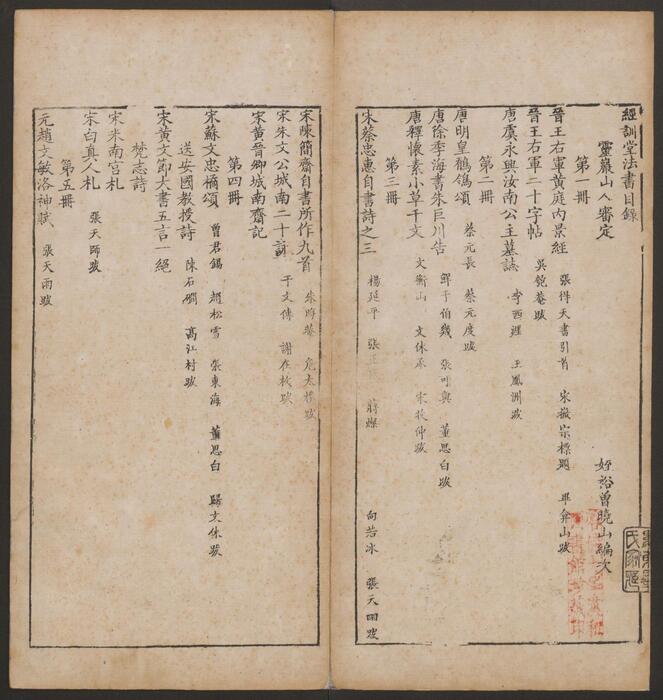 經訓堂法書目錄
靈巖山人審定　姪裕曾曉山編次
第一冊
晉王右軍黃庭內景經　張得天書引首　宋徽宗標題　畢弇山跋
晉王右軍二十字帖　吳匏菴跋
唐虞永興汝南公主墓誌　李西涯　王鳳洲跋
第二冊
唐明皇鶺鴒頌　蔡元長　蔡元度跋
唐徐季海書朱巨川告　鮮于伯幾　張可與　董思白跋
唐釋懷素小草千文　文衡山　文休承　宋牧仲跋
第三冊
宋蔡忠惠自書詩之三　楊延平　張正　蔣燦　向若冰　張天雨跋
宋陳簡齋自書所作九首　朱晦菴　危太樸跋
宋朱文公城南二十詠　干文傳　謝在杭跋
宋黃晉卿城南齋記
第四冊
宋蘇文忠橘頌　曾君錫　趙松雪　張東海　董思白　歸文休跋
送安國教授詩　陳石磵　高江村跋
宋黃文節大書五言一絕
梵志詩
宋米南宮札
宋白真人札　張天師跋
第五冊
元趙文敏洛神賦　張天雨跋